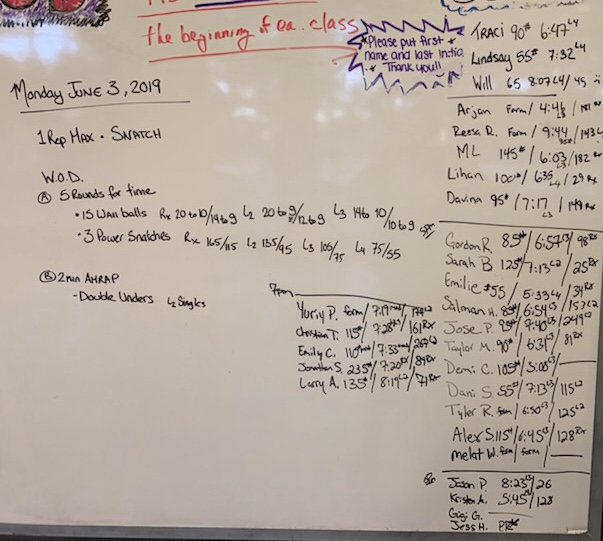 the beginning of ea. class
*Please put first *
name and last initial
* Thank you!!
Monday June 3, 2019
1 Rep Max • Snatch
W.O.D.
A 5 Rounds for time
• 15 Wall balls Rx 20 to 10/14 to 9 L2 20 to 9/12 to 9 L3 14 to 10/10 to 9
• 3 Power Snatches Rx 165/115 L2 135/95 L3 105/75 L4 75/55
B 2 min AMRAP
- Double Unders L2 Singles
Traci 90# 6:47 L4
Lindsay 55# 7:32 L4
Will 65 8:07 L4/45
Arjan Form/4:46 L3
Reesa R. Form/9:44
ML 145#/6:03 L3/182 Rx
Lihan 100#/635 L4/29 Rx
Davina 95#/7:17 L3/149 Rx
Gordon R 85#/6:57 L3/98 Rx
Sarah B 125#/7:13 L2/25 Rx
Emilie #55/5:33 L4/34 Rx
Salman H. 85#/6:54 L3/152 L2
Jose P. 95#/7:40 L3/249 L2
Taylor M. 90#/6:31 L3/81 Rx
Demi C. 105#/5:00 L3/
Dani S. 55#/7:13 L3/115 L2
Tyler R. form/6:50 L3/125 L2
Alex S. 115#/6:45 L3/128 Rx
Melat W. form/form/
7pm
Yuriy P. form/7:19
Christian T. 115#/7:28/161 Rx
Emily C. 110#/7:33/267 L2
Jonathan S. 235#/7:20 Rx/89 Rx
Larry A. 135#/8:19 L2/71 Rx
Jason P. 8:23 L3/26
Kristen A. 5:45/128
Gigi G.
Jess H. PR